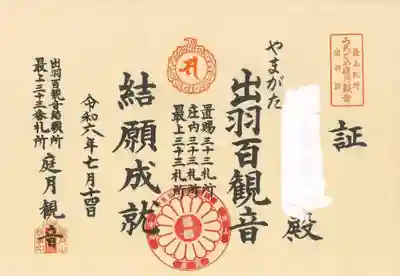 証
殿
やまがた
出羽百観音
置賜三十三札所
庄内三十三札所
最上三十三札所
結願成就
令和六年七月十四日
出羽百観音結願所
最上三十三番札所
庭月観音